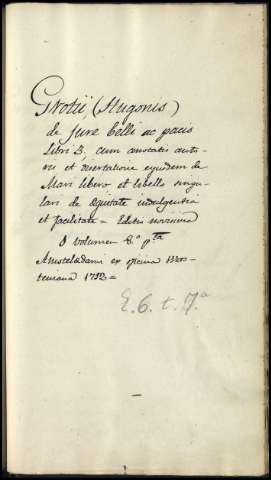 Grotii (Hugonis)
de jure belli ac pacis
Libri 3. cum anotatis auto-
ris et disertatione ejusdem de
Mari libero et libello singu-
lari de equitate indulgentia
et facilitate = Editio novisima
volumen 8.º pta
Amstelædami ex oficina Wes-
teniana 1712 =
E. 6. t. 7.a